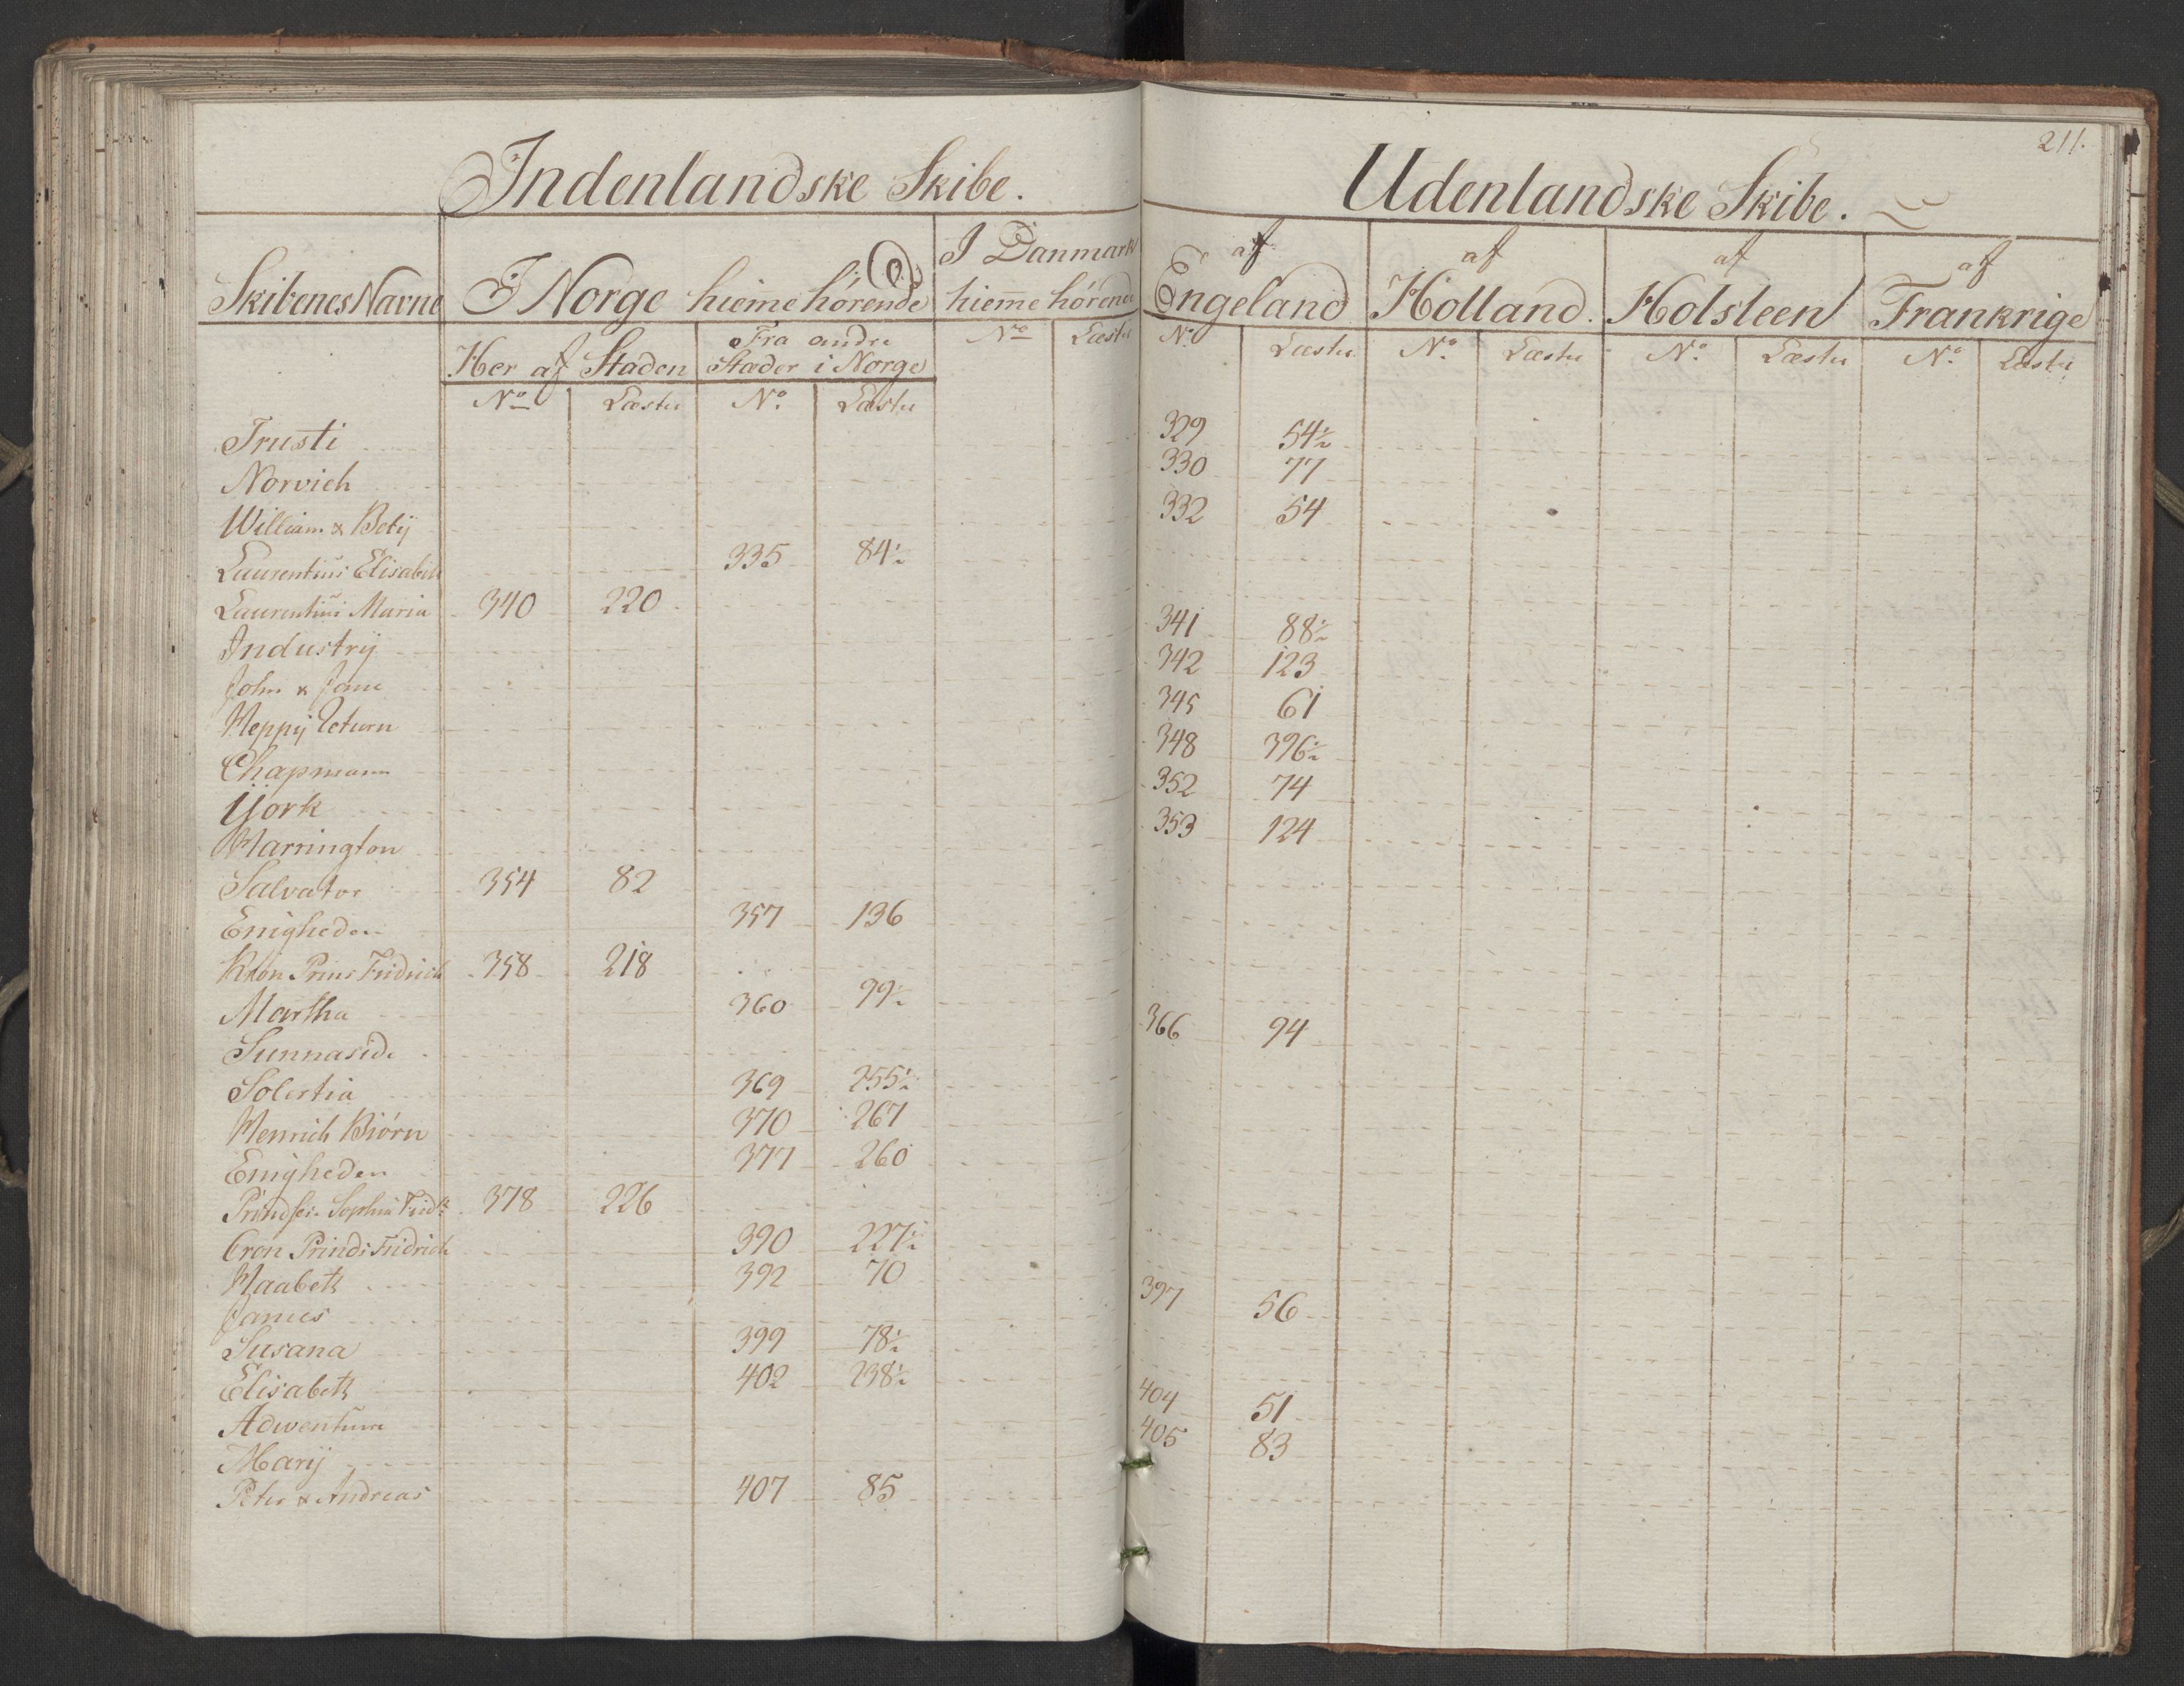 211.
Indenlandske Skibe.
Udenlandske Skibe.
Skibenes Navne
I Norge hiem̄e hörende
I Danmark
hiem̄e hörende
af
Engeland
af
Holland.
af
Holsteen
af
Frankrige
Her af Staden
Fra andre
Stæder i Norge
No Læster No Læster No Læster No Læster No Læster No Læster No Læster
Trusti 329 54½
Norvich 330 77
William & Betÿ 332 54
Laurentius Elisabeth 335 84½
Laurentius Maria 340 220
Industrÿ 341 88½
John & Jane 342 123
Heppÿ Return 345 61
Chapmann 348 396½
Ÿork 352 74
Harrington 353 124
Salvator 354 82
Enigheden 357 136
Kron Prins Fridrich 358 218
Martha 360 99½
Sunnaside 366 94
Solertia 369 255½
Henrich Biörn 370 267
Enigheden 377 260
Prindse: Sophia Frid: 378 226
Cron Prinds Fridrich 390 227½
Haabets 392 70
James 397 56
Susana 399 78½
Elisabeth 402 238½
Adwenture 404 51
Marÿ 405 83
Peter & Andreas 407 85